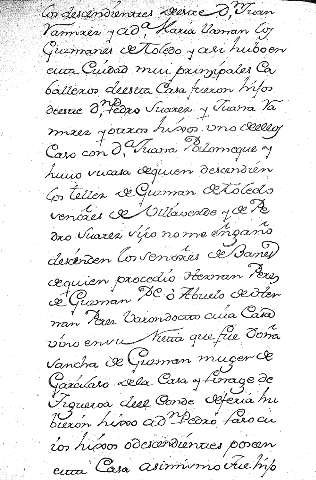 los descendientes deeste D.ⁿ Juan
Ramirez y a d.ª Maria llaman los
Guzmanes de toledo y asi hubo en
esta Ciudad mui principales Ca
balleros de esta Casa fueron hijos
deeste D.ⁿ Pedro Suarez y Juana Ra
mirez y otros hixos uno deellos
Caso con D.ª Juana Palomeque y
huuo su casa de quien descendien
los tellez de Guzman de toledo
señores de Villaverde y de Pe
dro Suarez hijo no me engaño
descienden los señores de Banes
de quien procedio Hernan Perez
de Guzman P.e o Abuelo de Her
nan Perez cuia Casa
vino en su Nieta que fue Doña
sancha de Guzman muger de
Garcilaso de la Casa y linage de
Figueroa de el Conde de feria hu
bieron hixos a d.ⁿ Pedro Laso cu
ios hixos o descendientes poseen
esta Casa asimismo fue hijo